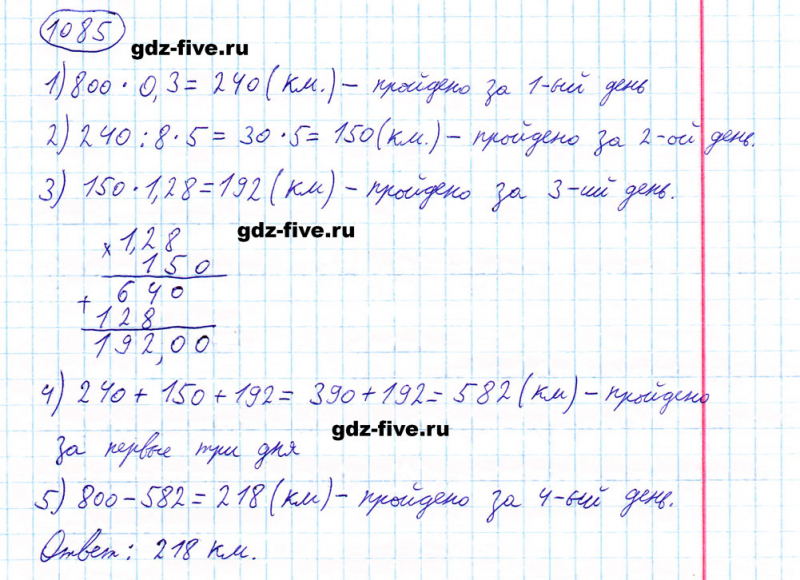 1085
gdz-five.ru
1) 800 · 0,3 = 240 (км.) – пройдено за 1-ый день
2) 240 : 8 · 5 = 30 · 5 = 150 (км.) – пройдено за 2-ой день.
3) 150 · 1,28 = 192 (км) – пройдено за 3-ий день.
gdz-five.ru
× 1,28
150
+ 640
128
192,00
4) 240 + 150 + 192 = 390 + 192 = 582 (км) – пройдено
gdz-five.ru
за первые три дня
5) 800 – 582 = 218 (км) – пройдено за 4-ый день.
Ответ: 218 км.